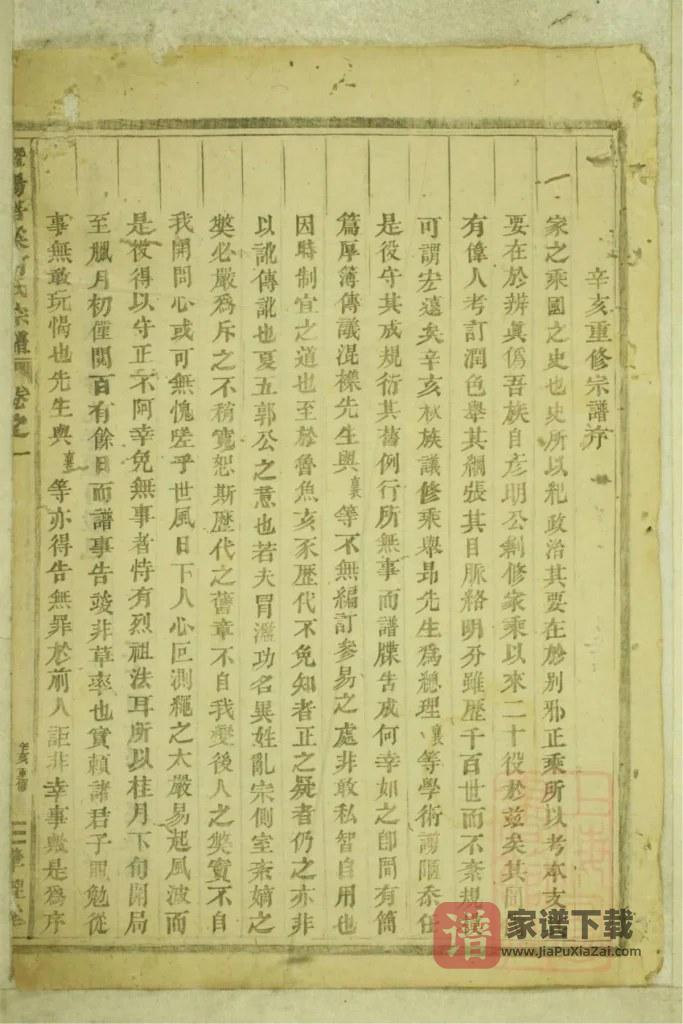 辛亥重修宗譜序
家之乘國之史也史所以紀政治其要在於別邪正乘所以考本支
要在於辨眞僞吾族自彦明公剏修家乘以來二十役於兹矣其間
有偉人考訂潤色舉其綱張其目脈絡明分雖歷千百世而不紊規
可謂宏遠矣辛亥秋族議修乘舉昂先生爲總理襄等學術謭陋忝任
是役守其成規衍其舊例行所無事而譜牒吿成何幸如之卽間有簡
篇厚簿傳議混襍先生與襄等不無編訂參易之處非敢私智自用也
因時制宜之道也至於魯魚亥豕歷代不免知者正之疑者仍之亦非
以訛傳訛也夏五郭公之意也若夫冒濫功名異姓亂宗側室紊嫡之
獘必嚴爲斥之不稍寬恕斯歷代之舊章不自我變後人之獘實不自
我開問心或可無愧嗟乎世風日下人心叵測繩之太嚴易起風波而
是役得以守正不阿幸免無事者恃有烈祖法耳所以桂月下旬開局
至臘月初僅閱百有餘日而譜事告竣非草率也實賴諸君子黽勉從
事無敢玩愒也先生與襄等亦得告無罪於前人詎非幸事歟是爲序
宗譜
卷之一
辛亥重修
家谱下载
www.JiaPuXiaZai.com
谱